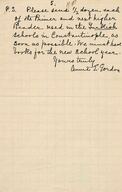 5.
P.S. Please send 1/2 dozen each
of the Primer and next higher
Reader used in the Turkish
schools in Constantinople, as
soon as possible. We must have
books for the new school year.
Yours truly
Annie E. Gordon